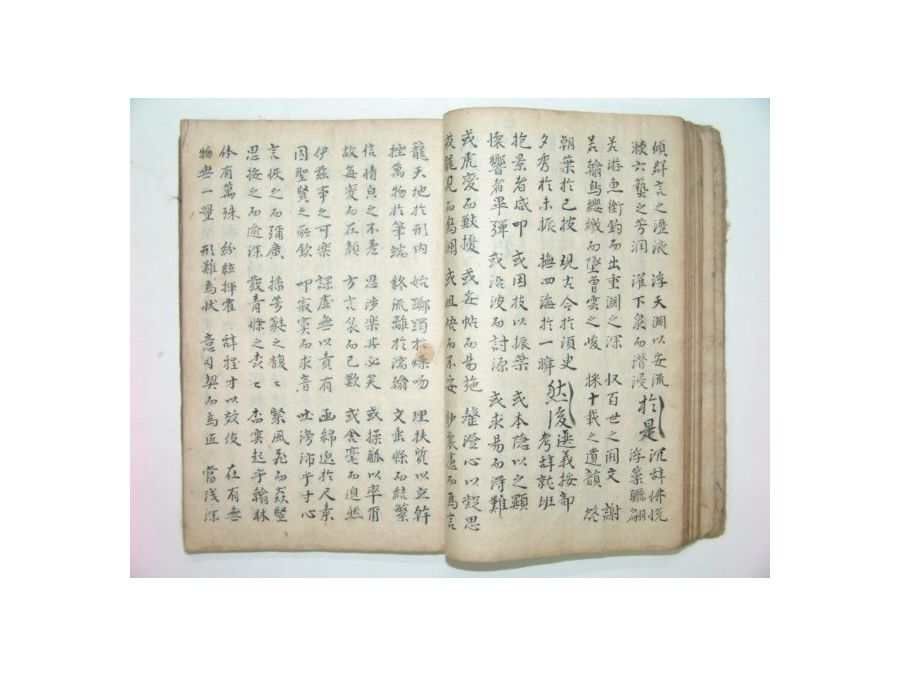 傾群言之瀝液 浮天淵以安流 於是 沈辭怫悅
漱六藝之芳潤 濯下泉而潛浸 浮藻聯翩
若游魚銜鉤而出重淵之深 收百世之闕文 謝
若翰鳥纓繳而墜曾雲之峻 採千載之遺韻 啓
朝華於已披 現古今於須臾 然後 選義按部
夕秀於未振 撫四海於一瞬 考辭就班
抱景者咸叩 或因枝以振葉 或本隱以之顯
懷響者畢彈 或沿波而討源 或求易而得難
或虎變而獸擾 或妥帖而易施 罄澄心以凝思
或龍見而鳥瀾 或岨峿而不安 眇衆慮而爲言
籠天地於形內 始躑躅於燥吻 理扶質以立幹
挫萬物於筆端 終流離於濡翰 文垂條而結繁
信情皃之不差 思涉樂其必笑 或操觚以率爾
故每變而在顏 方言哀而已歎 或含毫而邈然
伊茲事之可樂 課虛無以責有 函綿邈於尺素
固聖賢之所欽 叩寂寞而求音 吐滂沛乎寸心
言恢之而彌廣 播芳蕤之馥〻 粲風飛而猋豎
思按之而逾深 發青條之森〻 鬱雲起乎翰林
体有萬殊 紛紜揮霍 辭程才以效伎 在有無
物無一量 形難爲狀 意司契而爲匠 當淺深